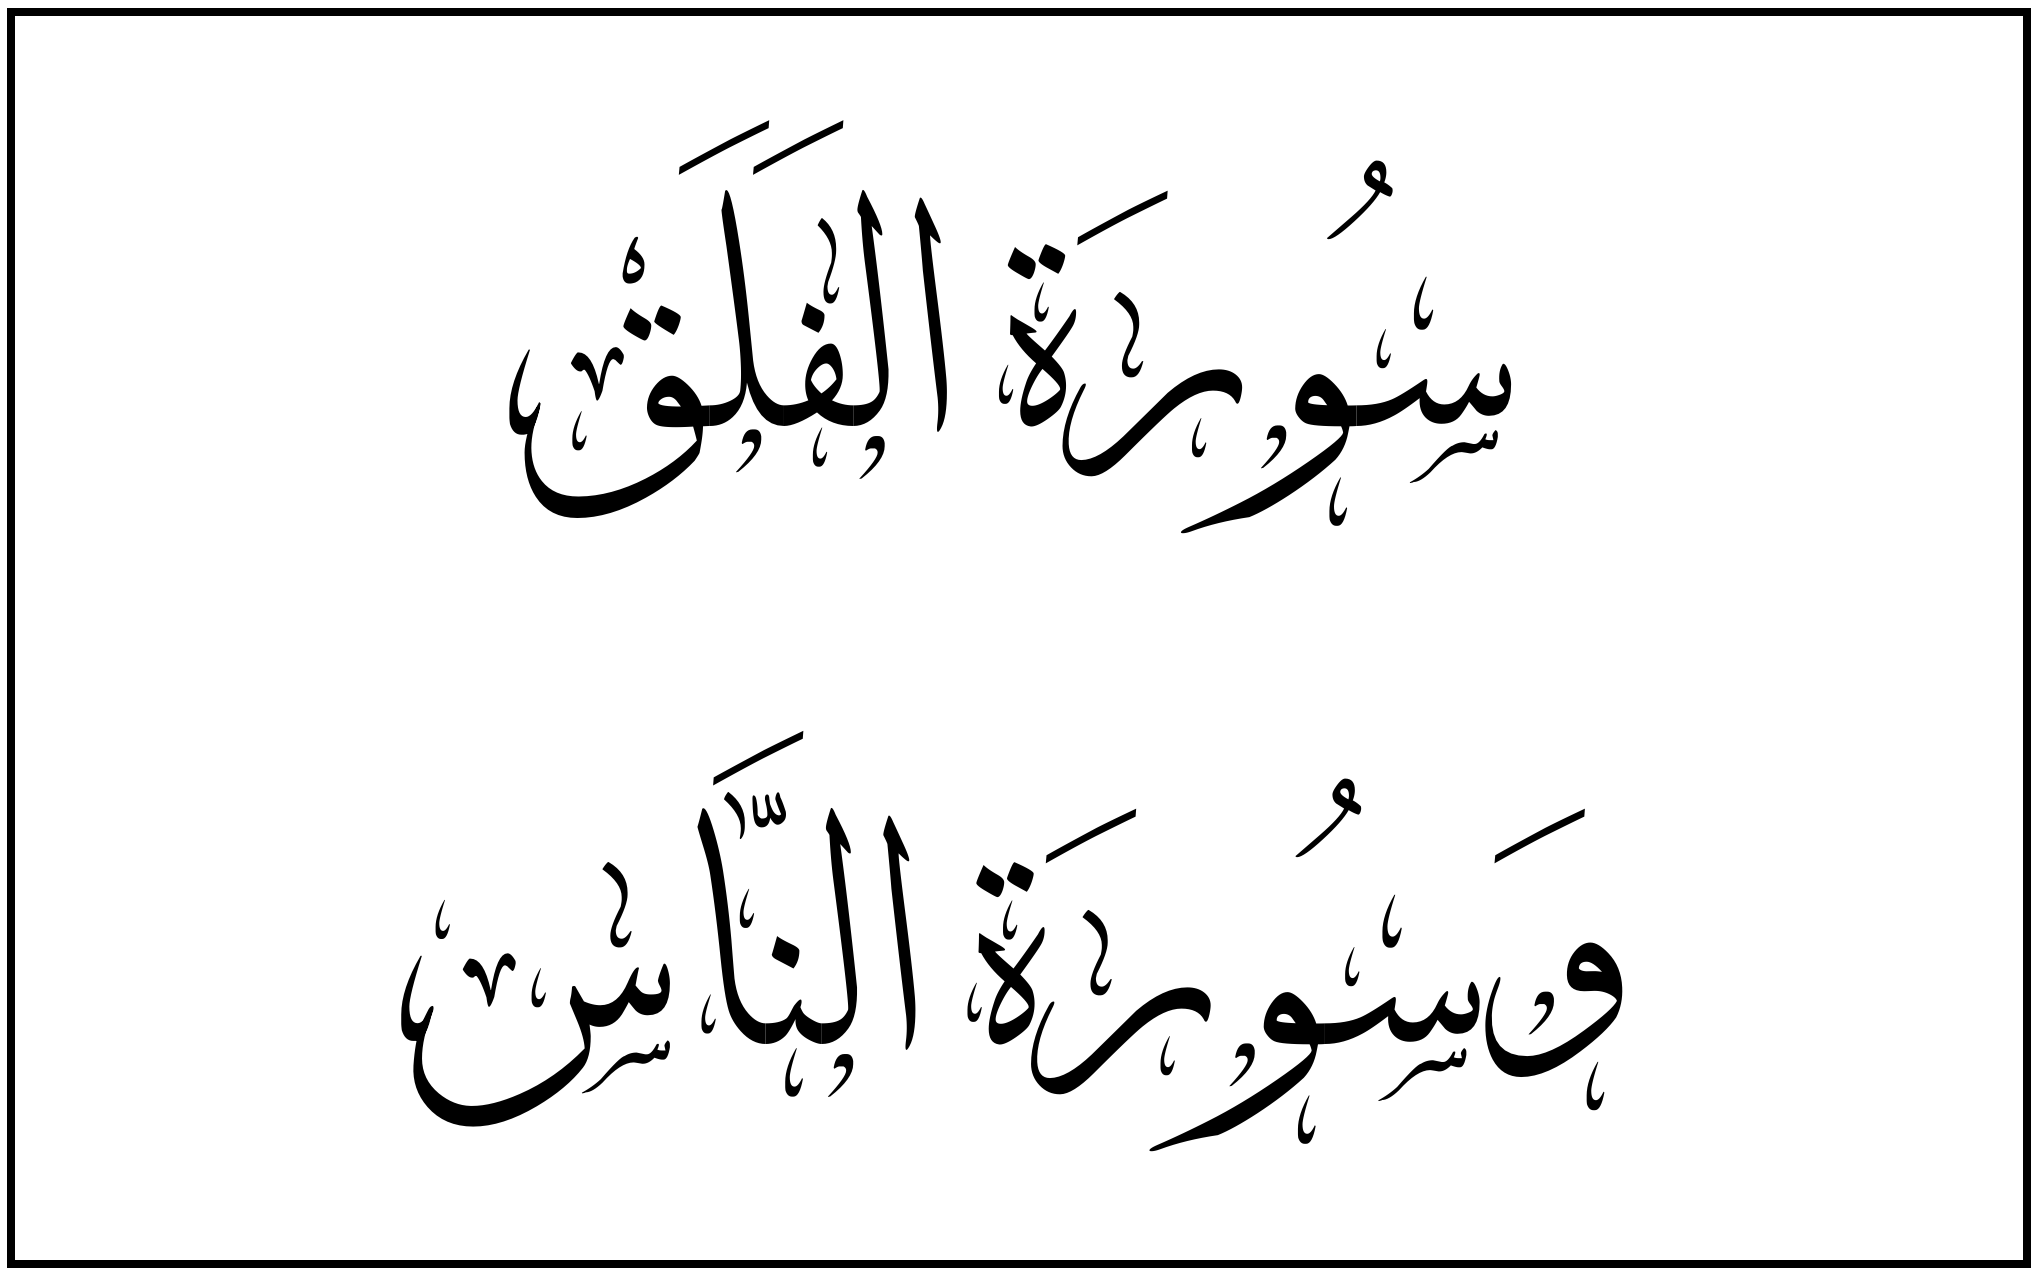 سُورَة الفَلَقْ
وَسُورَة النَّاس